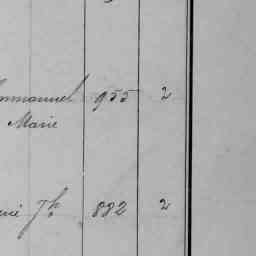 mmanuel 955 2
Marie
Jh 882 2